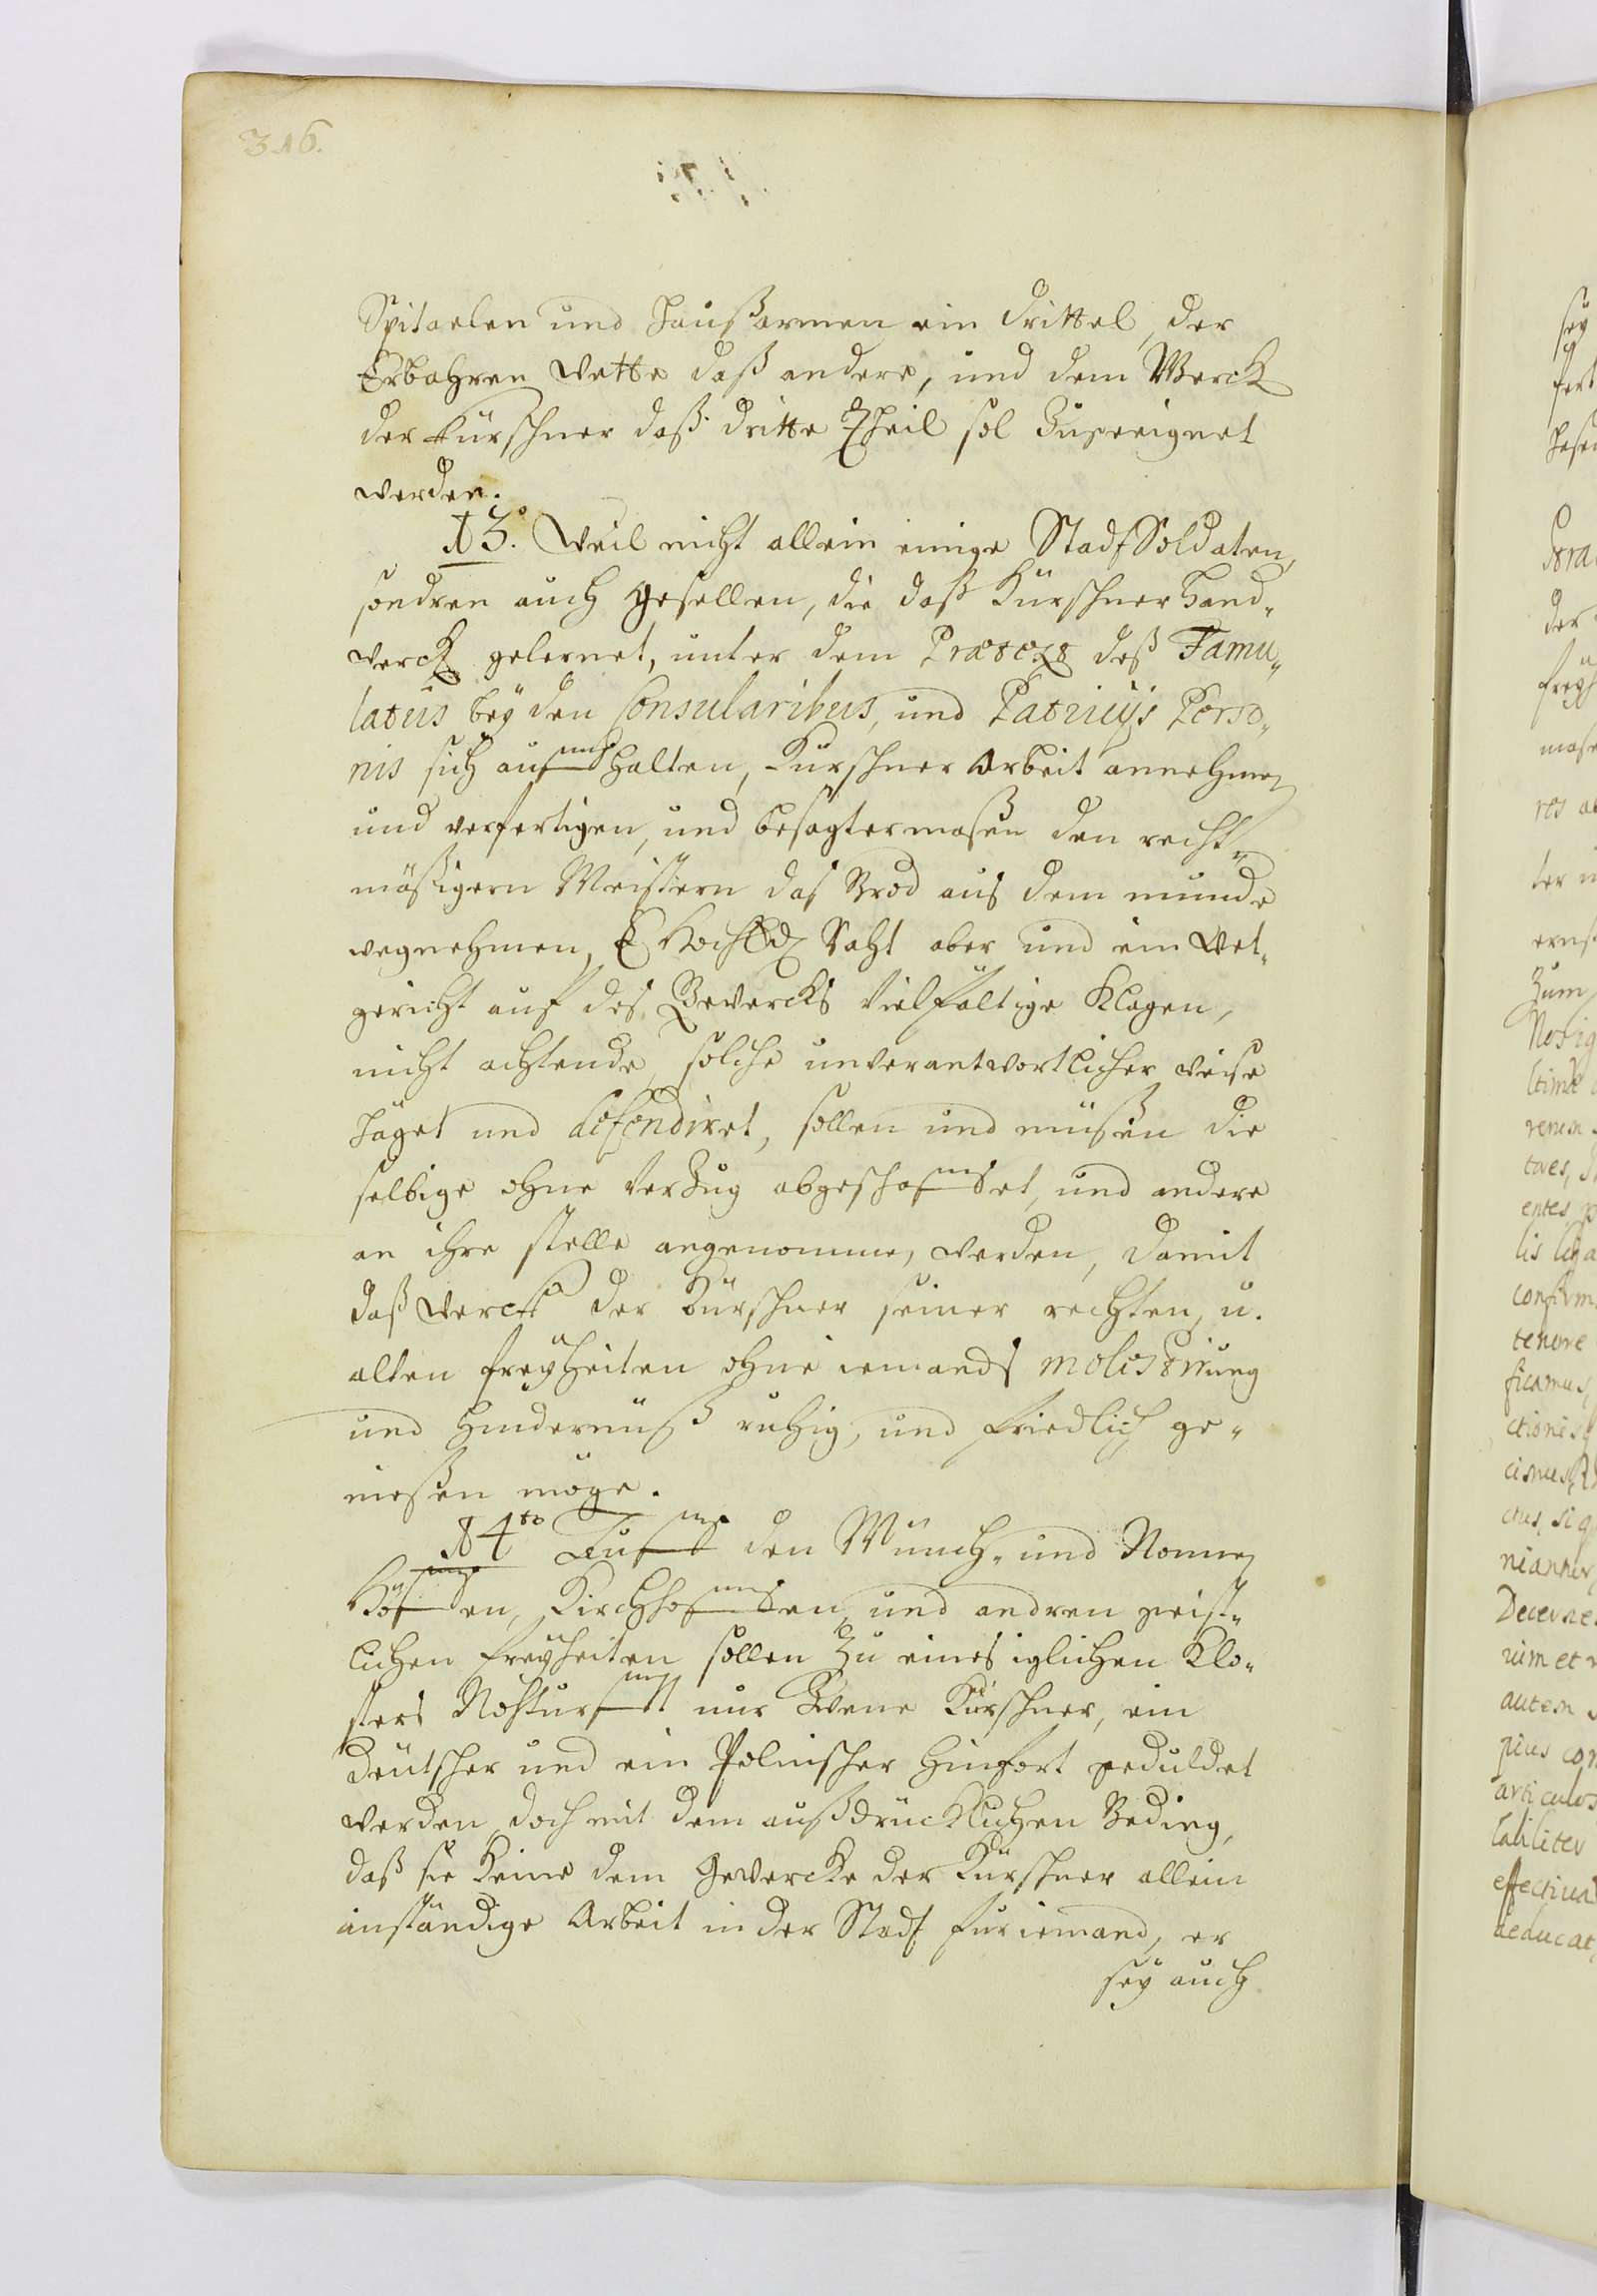 316.
Spitaelen und Haußarmen ein drittel, der
Erbahren Wette daß andere, und dem Werck
der Kürschner daß dritte Theil sol Zugeeignet
werden.
13. Weil nicht allein einige StadtSoldaten,
sondren auch Gesellen, die daß Kürschner Hand-
werck gelernet, unter dem Prætext deß Famu-
latus beÿ den Consularibus, und Patricijs Perso-
nis sich auffhalten, Kürschner Arbeit annehmen
und verfertigen, und besagtermaßen den recht-
mäßigern Meistern das Brod aus dem munde
wegnehmen, E HochEd Raht aber und ein Wet-
gericht auf des Gewercks Vielfältige Klagen,
nicht achtende, solche unverantwortlicher weise
Häget und defendiret, sollen und müßen die
selbige ohne VerZug abgeschaffet, und andere
an ihre stelle angenommen, werden, damit
daß werck der Kürschner seiner rechten, u.
alten freÿheiten ohne iemands molestirung
und Hindernuß ruhig, und friedlich ge-
nießen möge.
14to Auff den Münch- und Nonnen
Höffen, Kirchhoffen, und andren geist-
lichen Freÿheiten sollen Zu eines iglichen Klo-
sters Nohturfft nur Zwene Kürschner, ein
Deütscher und ein Polnischer hinfort geduldet
werden, doch mit dem außdrücklichen Beding,
daß sie keine dem Gewercke der Kürschner allein
anständige Arbeit in der Stadt für iemand, er
seÿ auch